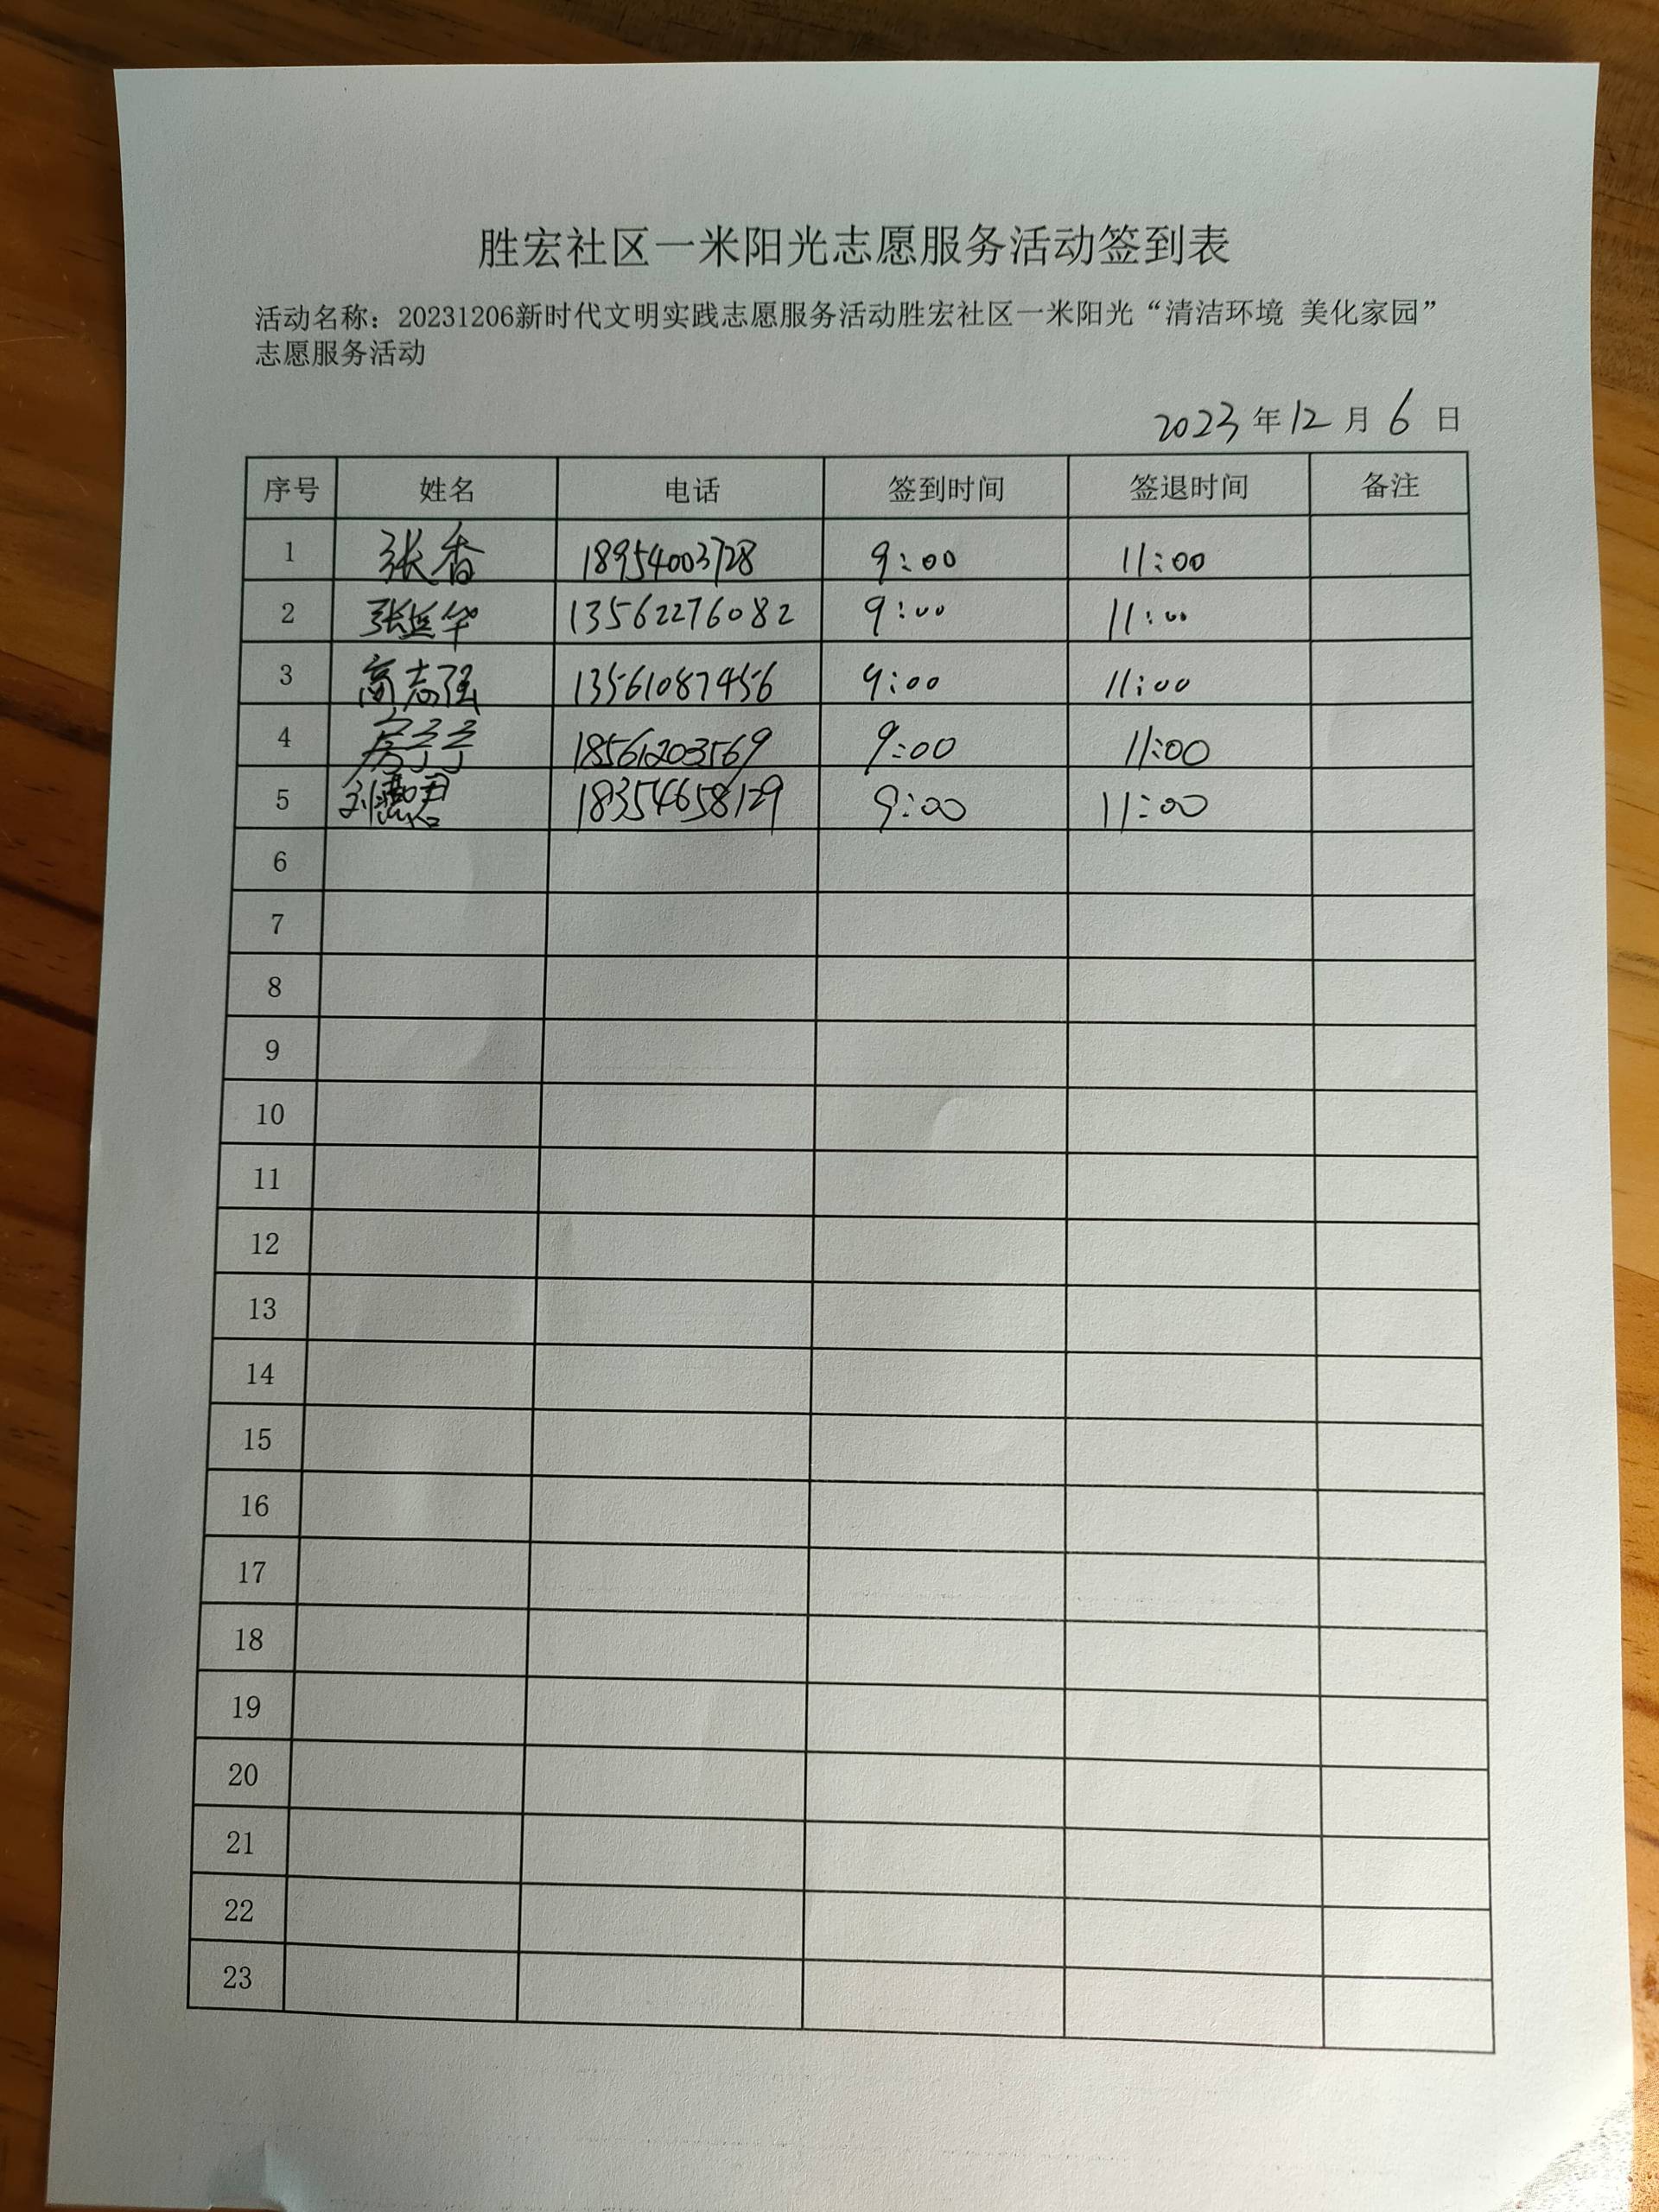 胜宏社区一米阳光志愿服务活动签到表
活动名称：20231206新时代文明实践志愿服务活动胜宏社区一米阳光“清洁环境 美化家园”
志愿服务活动
2023 年 12 月 6 日
序号 姓名 电话 签到时间 签退时间 备注
1 张香 18954003728 9:00 11:00
2 张延华 13562276082 9:00 11:00
3 高志强 13561087456 9:00 11:00
4 房亭亭 18561203569 9:00 11:00
5 刘君 18354658129 9:00 11:00
6
7
8
9
10
11
12
13
14
15
16
17
18
19
20
21
22
23